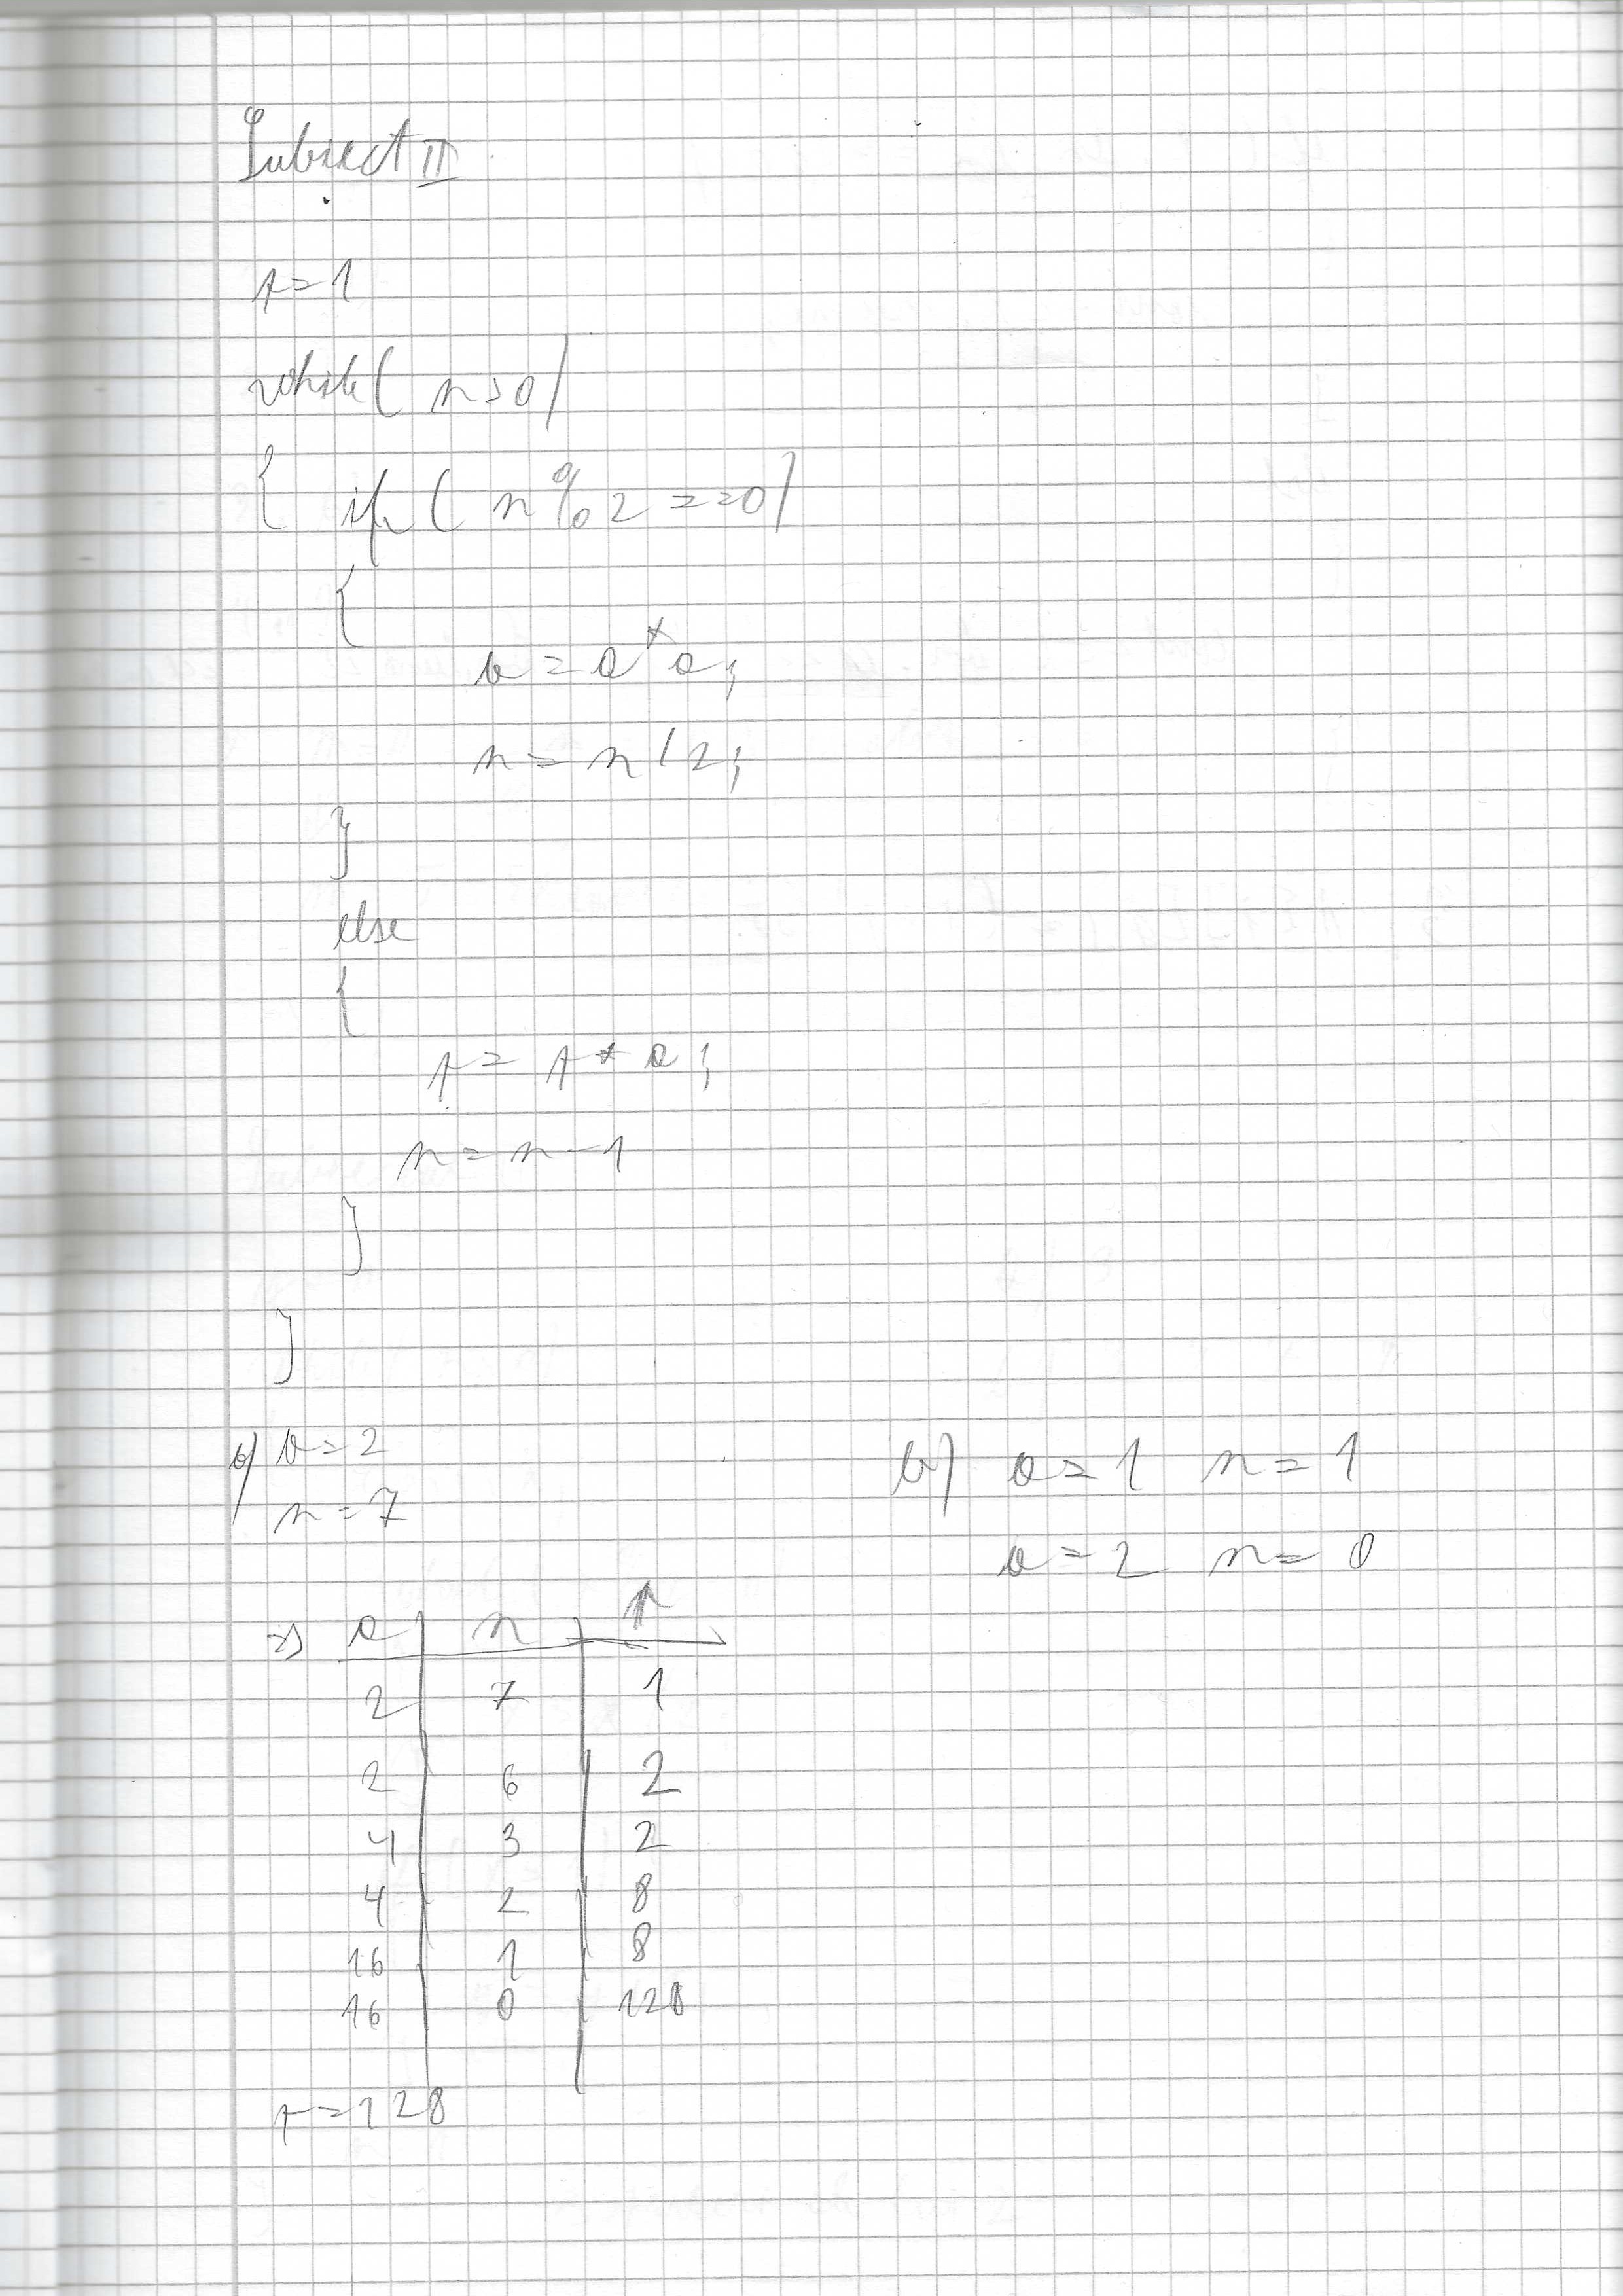 Subiect II
p=1
while( n>0)
{ if ( n%2==0)
{
a=a*a;
n=n/2;
}
else
{
p=p*a;
n=n-1
}
}
a) a=2
n=7
=> a n p
2 7 1
2 6 2
4 3 2
4 2 8
16 1 8
16 0 128
p=128
b) a=1 n=1
a=2 n=0